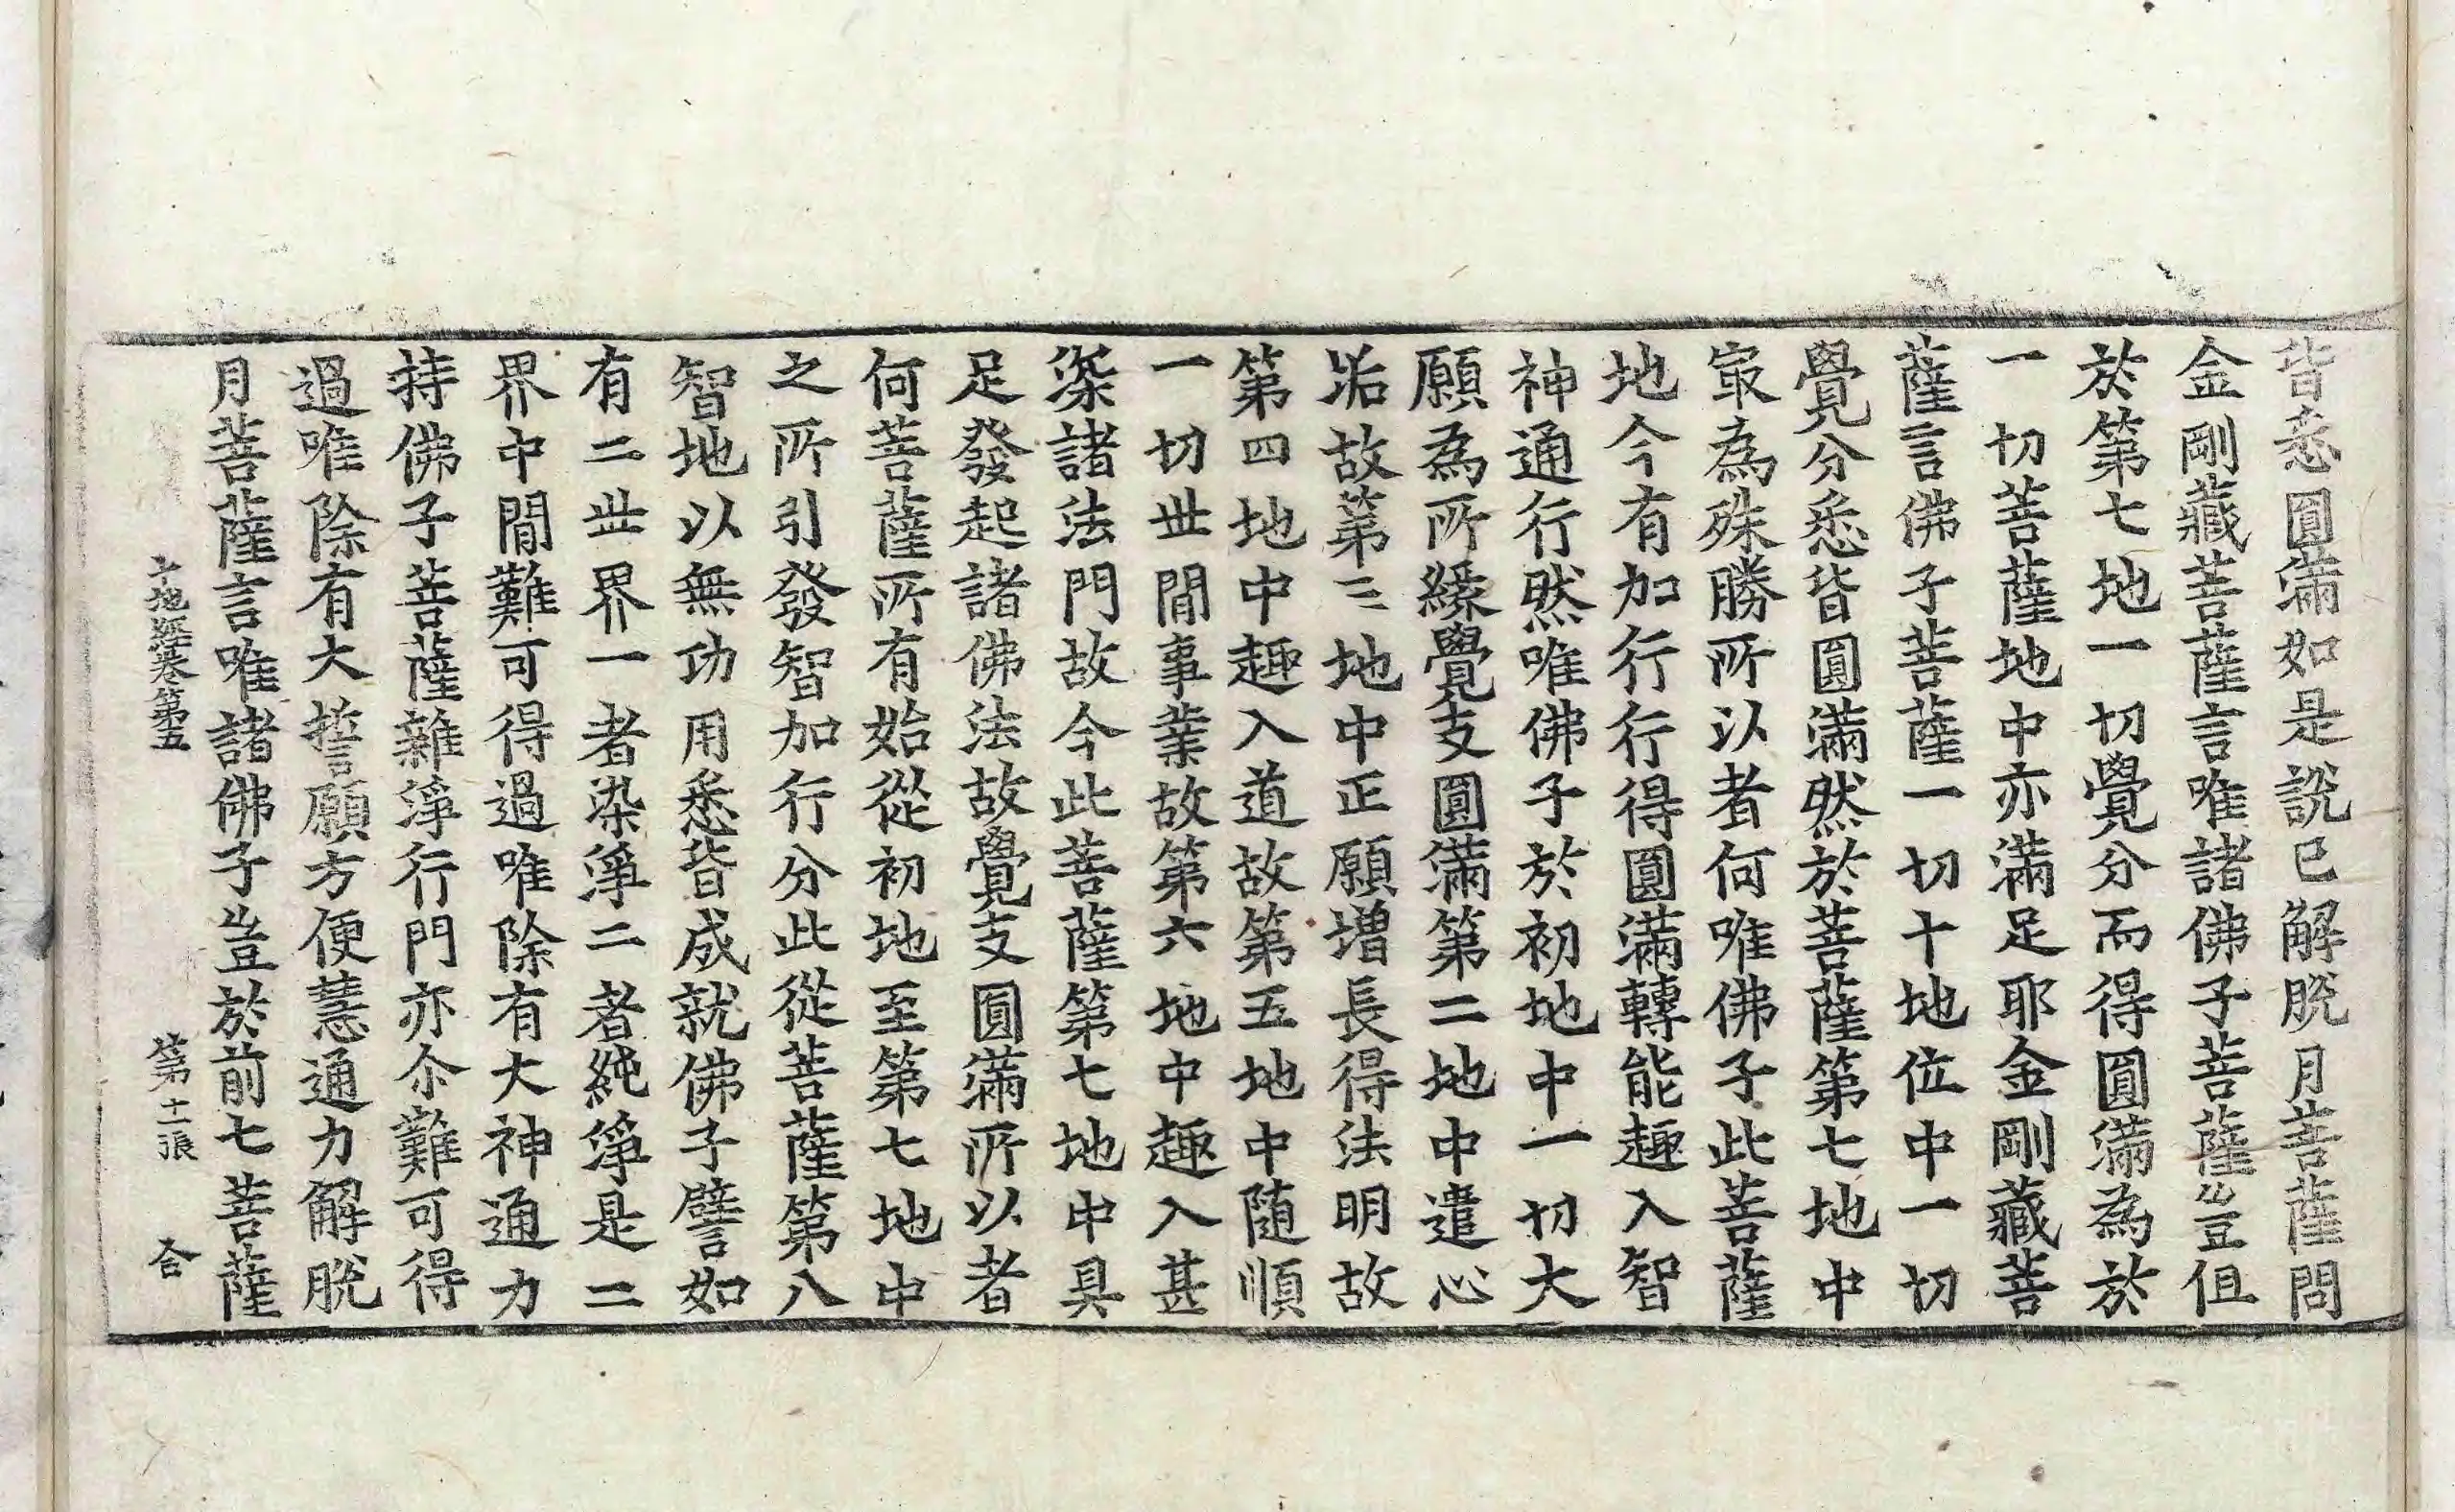 皆悉圓滿如是說已解脫月菩薩問
金剛藏菩薩言唯諸佛子菩薩豈但
於第七地一切覺分而得圓滿為於
一切菩薩地中亦滿足耶金剛藏菩
薩言佛子菩薩一切十地位中一切
覺分悉皆圓滿然於菩薩第七地中
㝡為殊勝所以者何唯佛子此菩薩
地今有加行行得圓滿轉能趣入智
神通行然唯佛子於初地中一切大
願為所緣覺支圓滿第二地中遣心
垢故第三地中正願增長得法明故
第四地中趣入道故第五地中随順
一切世間事業故第六地中趣入甚
深諸法門故今此菩薩第七地中具
足發起諸佛法故覺支圓滿所以者
何菩薩所有始從初地至第七地中
之所引發智加行分此從菩薩第八
智地以無功用悉皆成就佛子譬如
有二世界一者染淨二者純淨是二
界中間難可得過唯除有大神通力
持佛子菩薩雜淨行門亦尒難可得
過唯除有大誓願方便慧通力解脫
月菩薩言唯諸佛子豈於前七菩薩
十地經卷第五 第十二張 合